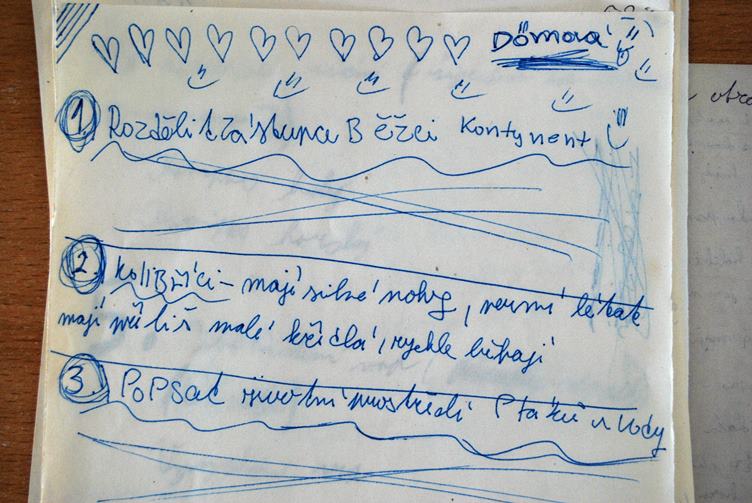 1. Rozdělit zástupce Běžci Kontynent
2. KoliBříci – mají silné nohy, neumí létat
mají příliš malé křídla, rychle běhají
3. PoPsat životní prostředí Ptáků u vody